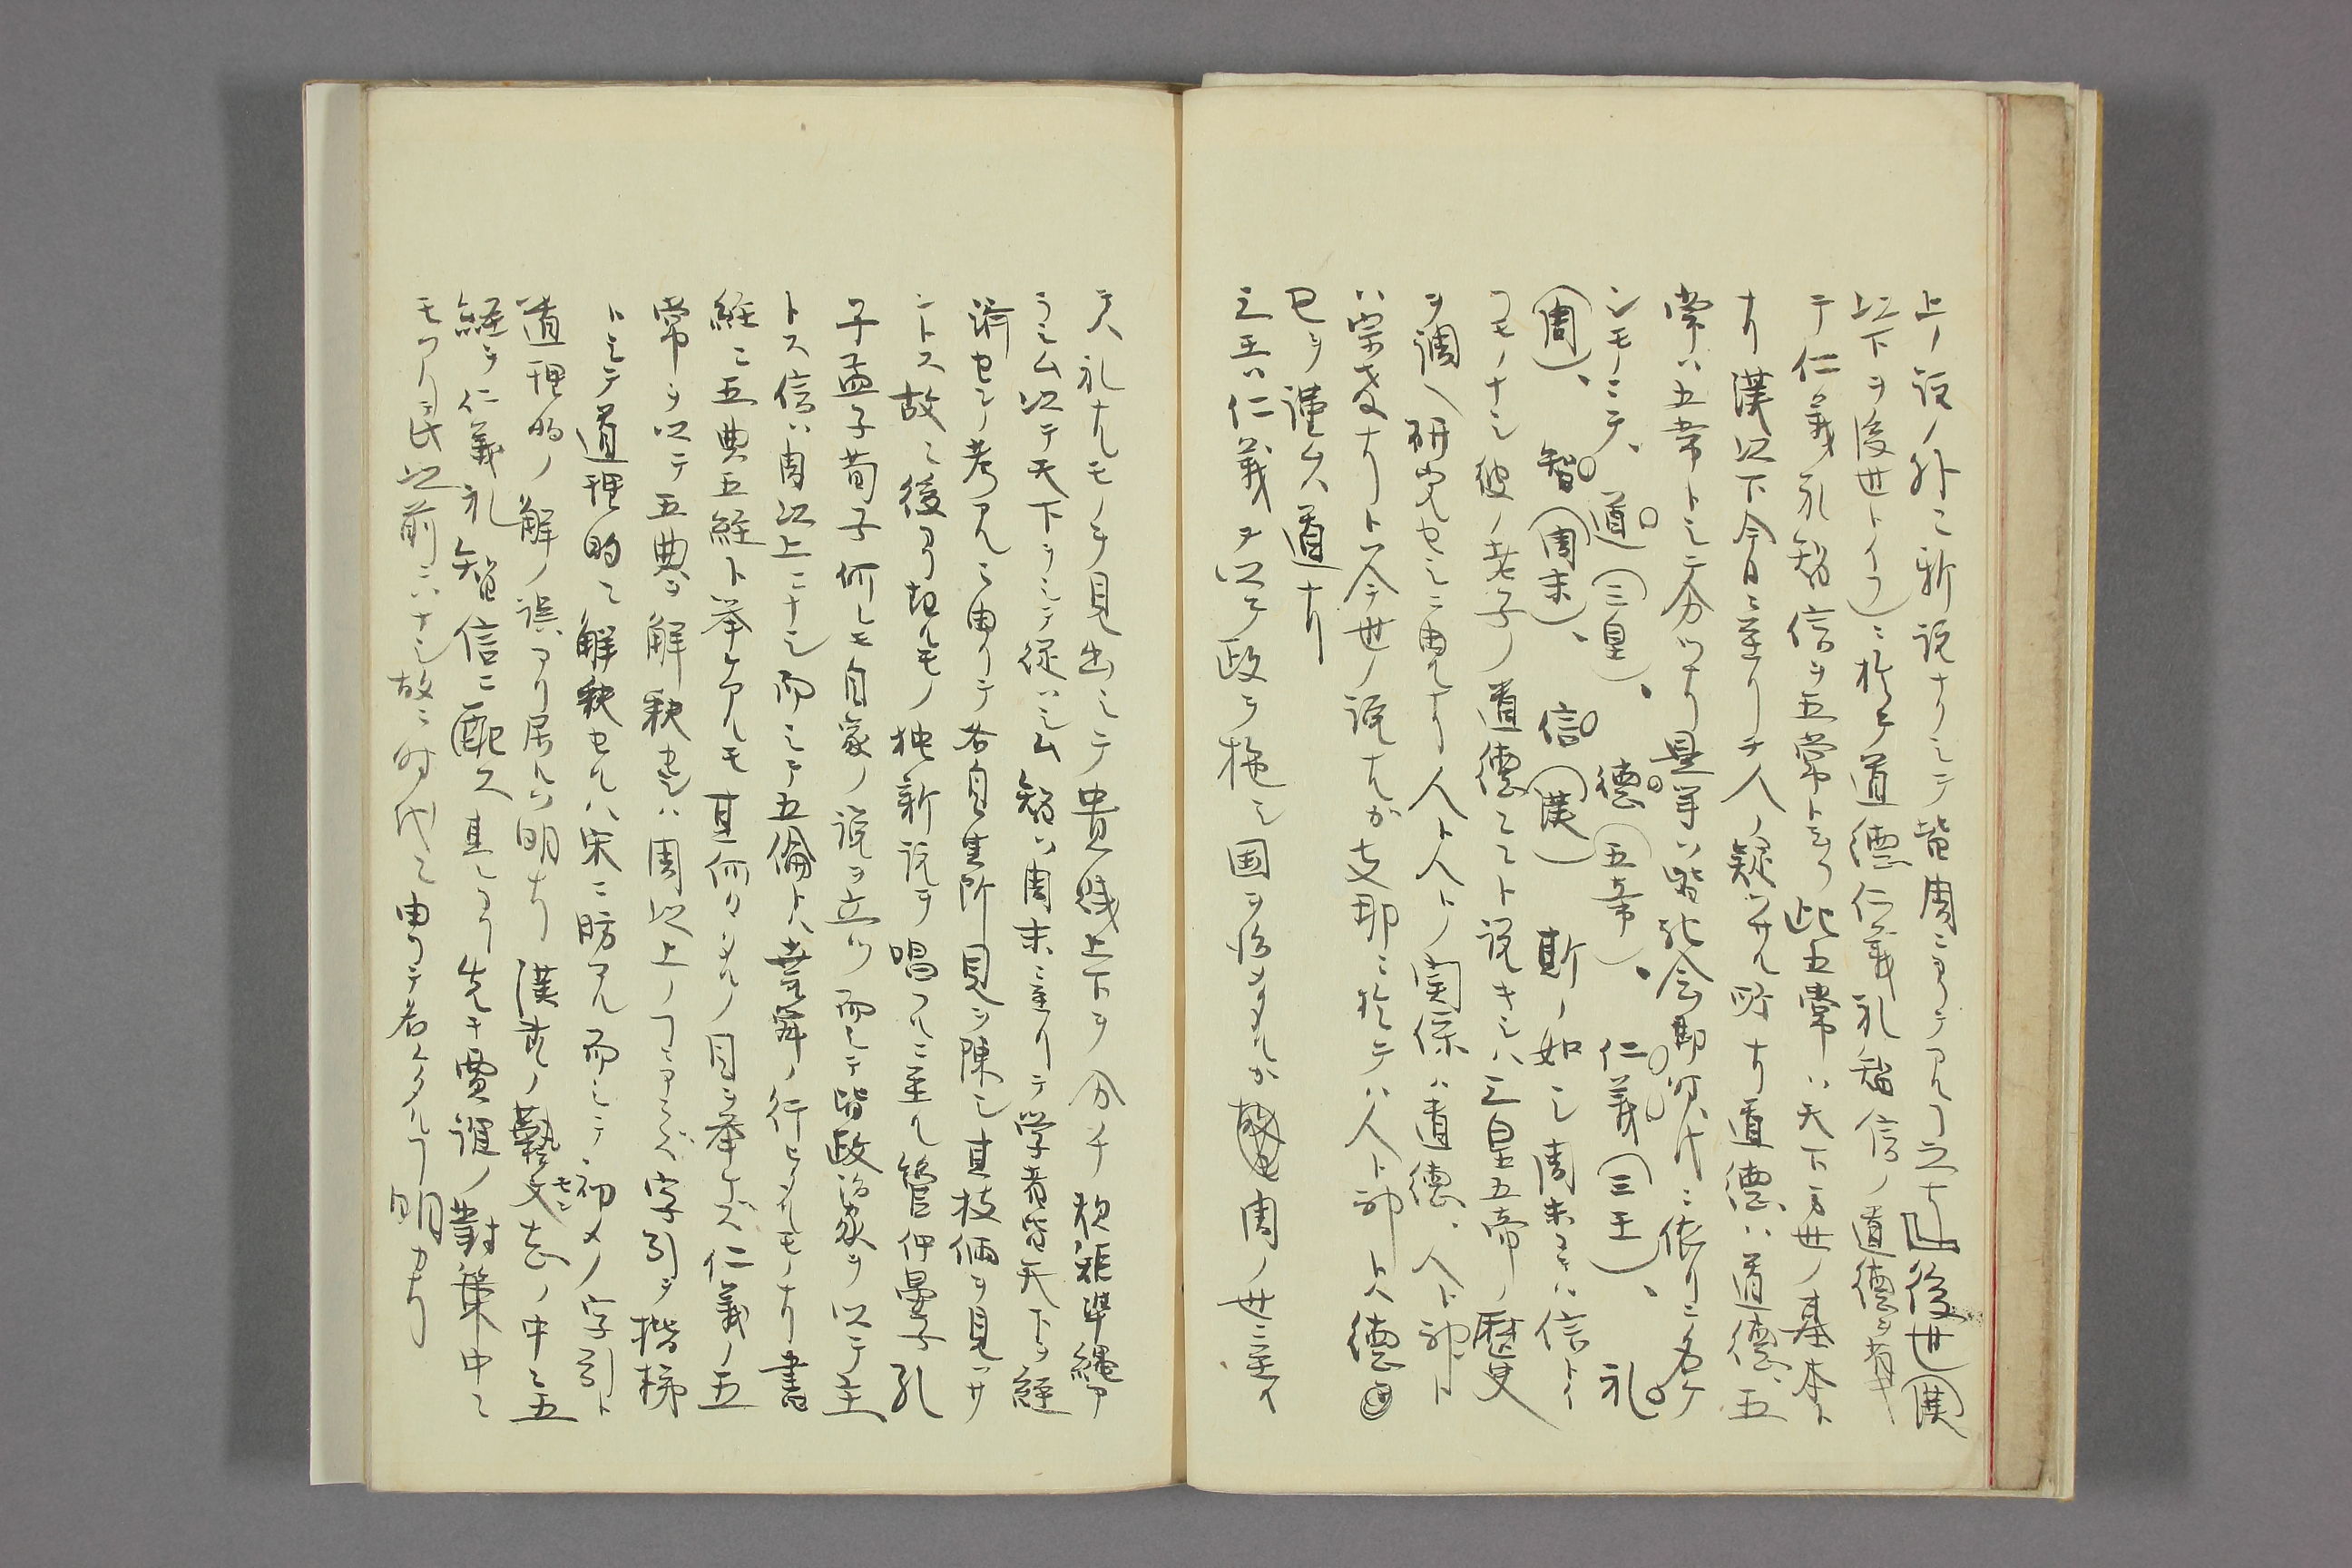 上ノ説ノ外ニ新説ナリシテ皆周ニヨリテアルヿ之ナ」後世(漢
以下ヲ後世トイフ)ニ於テ道徳仁義礼智信ノ道徳ヲ
テ仁義礼智信ヲ五常ト云フ此五常ハ天下万世ノ基本ト
ナリ漢以下今日ニ至リテ人ノ疑ハザル所ナリ道徳ハ道徳、五
常ハ五常トシテ分ツナリ是等ハ皆社会ノ時代ニ依リテ名ケ
シモノニテ、道(三皇)、徳(五帝)、仁義(三王)、礼
(周)、智(周末)、信(漢)斯ノ如シ周末ニハ信トイ
フモノナシ彼ノ老子ノ道徳々々ト説キシハ三皇五帝ノ歴史
ヲ調ヘ研究セシニ由ルナリ人ト人トノ関係ハ道徳、人ト神ト
ハ宗教ナリトハ今世ノ説ナルガ支那ニ於テハ人ト神トハ徳
已ヲ謹ムハ道ナリ
三王ハ仁義ヲ以テ政ヲ施シ国ヲ治メタルガ周ノ世ニ至イ
テハ礼ナルモノヲ見出シテ貴賤上下ヲ分チ規矩準縄ア
ラシム以テ天下ヲシテ従ハシム智ハ周末ニ至リテ学者皆天下ヲ経
済セシノ考アルニ由リテ各自其所見ヲ陳シ其技倆ヲ見ハサ
ントス故ニ後ヨリ起ルモノ独新説ヲ唱フルニ至ル管仲晏子孔
子孟子荀子何レモ自家ノ説ヲ立ツ而シテ皆政治家ヲ以テ主
トス信ハ周以上ニナシ而シテ五倫トハ堯舜ノ行ヒタルモノナリ書
経ニ五典五経ト挙ケアルモ其何々タルノ目ヲ挙ケズ仁義ノ五
常ヲ以テ五典ヲ解釈セシハ周以上ノヿニアラズ字引ヲ楷梯
トシテ道理的ニ解釈セルハ宋ニ昉アル而シテ初メノ字引ト
道理的ノ解ノ誤アリ居ルハ明ナリ漢書ノ藝文志ノ中ニ五
経ヲ仁義礼智信ニ配ス其レヨリ先キ賈誼ノ對策中ニ
モアリ氏以前ニハナシ故ニ時代ニ由リテ名ケタルヿ明カナリ